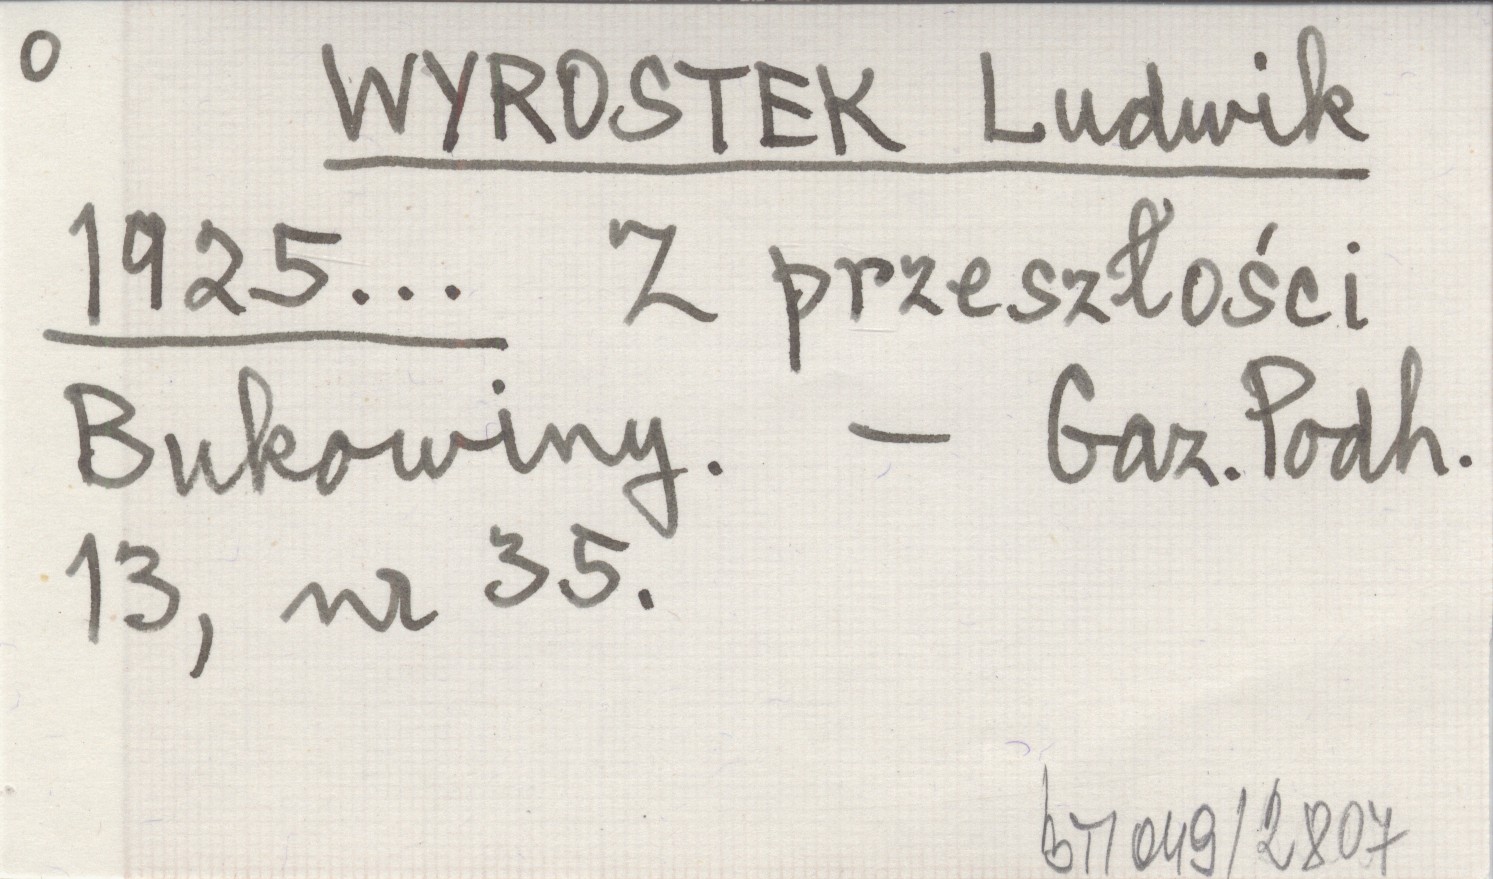 o
WYROSTEK Ludwik
1925... Z przeszłości
Bukowiny. — Gaz. Podh.
13, nr 35.
049/2807